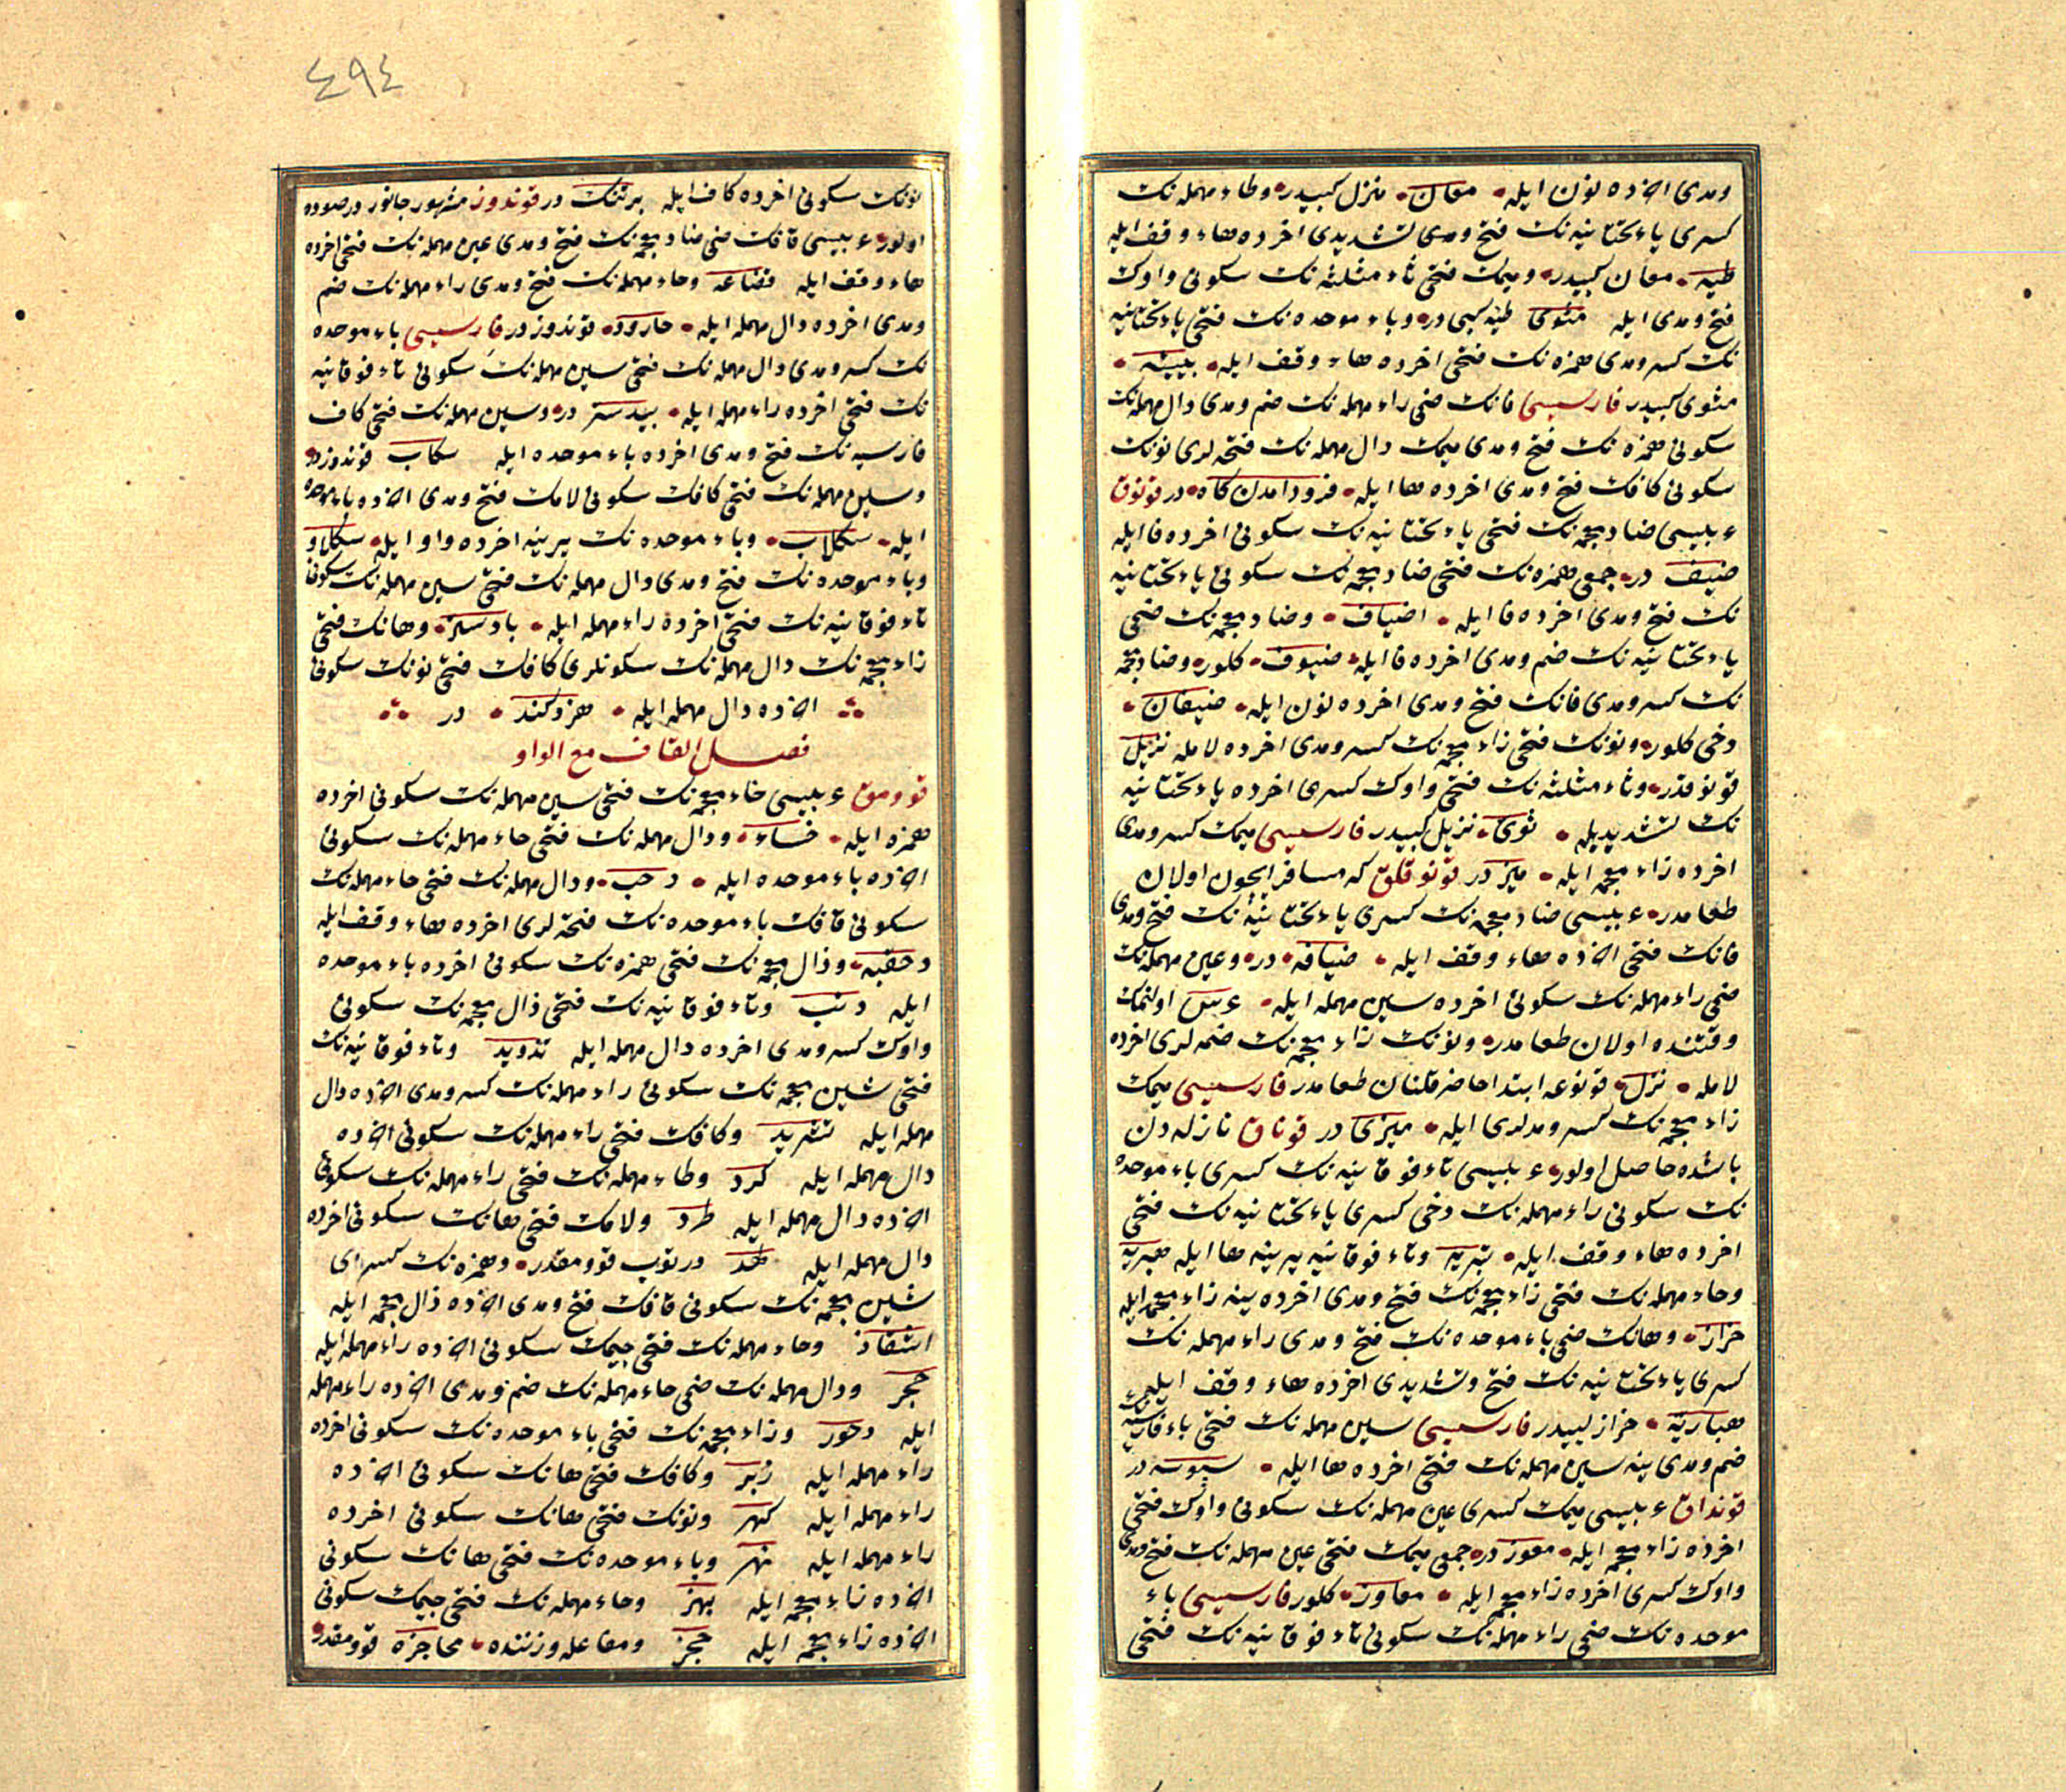 ومدى اخرده نون ايله معان منزل كبيدر وطاء مهمله نك
كسرى ياء تحتانيه نك فتح ومدى تشديدى اخرده هاء وقف ايله
طيه معان كبيدر وميمك فتحى ثاء مثلثه نك سكونى واوك
فتح ومدى ايله مثوى طيه كبى در وباء موحده نك فتحى ياء تحتانيه
نك كسر ومدى همزه نك فتحى اخرده هاء وقف ايله بيئه
مثوى كبيدر فارسيسى فانك ضمى راء مهمله نك ضم ومدى دال مهمله نك
سكونى همزه نك فتح ومدى ميمك دال مهمله نك فتحه لرى نونك
سكونى كافك فتح ومدى اخرده ها ايله فرود امدن كاه در قونوق
عربيسى ضاد معجمه نك فتحى ياء تحتانيه نك سكونى اخرده فا ايله
ضيف در جمعى همزه نك فتحى ضاد معجمه نك سكونى ياء تحتانيه
نك فتح ومدى اخرده فا ايله اضياف وضاد معجمه نك ضمى
ياء تحتانيه نك ضم ومدى اخرده فا ايله ضيوف كلور وضاد معجمه
نك كسر ومدى فانك فتح ومدى اخرده نون ايله ضيفان
دخى كلور ونونك فتحى زاء معجمه نك كسر ومدى اخرده لامله نزيل
قونوقدر وثاء مثلثه نك فتحى واوك كسرى اخرده ياء تحتانيه
نك تشديديله ثوى نزيل كبيدر فارسيسى ميمك كسر ومدى
اخرده زاء معجمه ايله ميز در قونوقلق كه مسافر ايچون اولان
طعامدر عربيسى ضاد معجمه نك كسرى ياء تحتانيه نك فتح ومدى
فانك فتحى اخرده هاء وقف ايله ضيافه در وعين مهمله نك
ضمى راء مهمله نك سكونى اخرده سين مهمله ايله عرس اولنمك
وقتنده اولان طعامدر ونونك زاء معجمه نك ضمه لرى اخرده
لامله نزل قونوغه ابتدا حاضر قلنان طعامدر فارسيسى ميمك
زاء معجمه نك كسر ومدلرى ايله ميزى در قوناق نازله دن
باشده حاصل اولور عربيسى تاء فوقانيه نك كسرى باء موحده
نك سكونى راء مهمله نك دخى كسرى ياء تحتانيه نك فتحى
اخرده هاء وقف ايله تبريه وتاء فوقانيه يرينه ها ايله هبريه
وحاء مهمله نك فتحى زاء معجمه نك فتح ومدى اخرده ينه زاء معجمه ايله
حزاز وهانك ضمى باء موحده نك فتح ومدى راء مهمله نك
كسرى ياء تحتانيه نك فتح وتشديدى اخرده هاء وقف ايله
هباريه حزاز كبيدر فارسيسى سين مهمله نك فتحى باء فارسيه نك
ضم ومدى ينه سين مهمله نك فتحى اخرده ها ايله سپوسه در
قونداق عربيسى ميمك كسرى عين مهمله نك سكونى واوك فتحى
اخرده زاء معجمه ايله معوز در جمعى ميمك فتحى عين مهمله نك فتح ومدى
واوك كسرى اخرده زاء معجمه ايله معاوز كلور فارسيسى باء
موحده نك ضمى راء مهمله نك سكونى تاء فوقانيه نك فتحى
٤٩٤
نونك سكونى اخرده كاف ايله برتنك در قوندوز مشهور جانور در صوده
اولور عربيسى قافك ضمى ضاد معجمه نك فتح ومدى عين مهمله نك فتحى اخرده
هاء وقف ايله قضاعه وحاء مهمله نك فتح ومدى راء مهمله نك ضم
ومدى اخرده دال مهمله ايله حارود قوندوز در فارسيسى باء موحده
نك كسر ومدى دال مهمله نك فتحى سين مهمله نك سكونى تاء فوقانيه
نك فتحى اخرده راء مهمله ايله بيدستر در وسين مهمله نك فتحى كاف
فارسيه نك فتح ومدى اخرده باء موحده ايله سكاب قوندوز در
وسين مهمله نك فتحى كافك سكونى لامك فتح ومدى اخرده باء موحده
ايله سكلاب وباء موحده نك يرينه اخرده واو ايله سكلاو
وباء موحده نك فتح ومدى دال مهمله نك فتحى سين مهمله نك سكونى
تاء فوقانيه نك فتحى اخرده راء مهمله ايله بادستر وهانك فتحى
زاء معجمه نك دال مهمله نك سكونلرى كافك فتحى نونك سكونى
اخرده دال مهمله ايله هزدكند در
فصل القاف مع الواو
قوومق عربيسى خاء معجمه نك فتحى سين مهمله نك سكونى اخرده
همزه ايله خساء ودال مهمله نك فتحى حاء مهمله نك سكونى
اخرده باء موحده ايله دحب ودال مهمله نك فتحى حاء مهمله نك
سكونى قافك باء موحده نك فتحه لرى اخرده هاء وقف ايله
دحقبه وذال معجمه نك فتحى همزه نك سكونى اخرده باء موحده
ايله ذئب وتاء فوقانيه نك فتحى ذال معجمه نك سكونى
واوك كسر ومدى اخرده دال مهمله ايله تذويد وتاء فوقانيه نك
فتحى شين معجمه نك سكونى راء مهمله نك كسر ومدى اخرده دال
مهمله ايله تشريد وكافك فتحى راء مهمله نك سكونى اخرده
دال مهمله ايله كرد وطاء مهمله نك فتحى راء مهمله نك سكونى
اخرده دال مهمله ايله طرد ولامك فتحى هانك سكونى اخرده
دال مهمله ايله لهد دورتوب قوومقدر وهمزه نك كسرى
شين معجمه نك سكونى قافك فتح ومدى اخرده ذال معجمه ايله
اشقاذ وحاء مهمله نك فتحى جيمك سكونى اخرده راء مهمله ايله
حجر ودال مهمله نك ضمى حاء مهمله نك ضم ومدى اخرده راء مهمله
ايله دحور وزاء معجمه نك فتحى باء موحده نك سكونى اخرده
راء مهمله ايله زبر وكافك فتحى هانك سكونى اخرده
راء مهمله ايله كهر ونونك فتحى هانك سكونى اخرده
راء مهمله ايله نهر وباء موحده نك فتحى هانك سكونى
اخرده زاء معجمه ايله بهز وحاء مهمله نك فتحى جيمك سكونى
اخرده زاء معجمه ايله حجز ومفاعله وزننده محاجزه قوومقدر